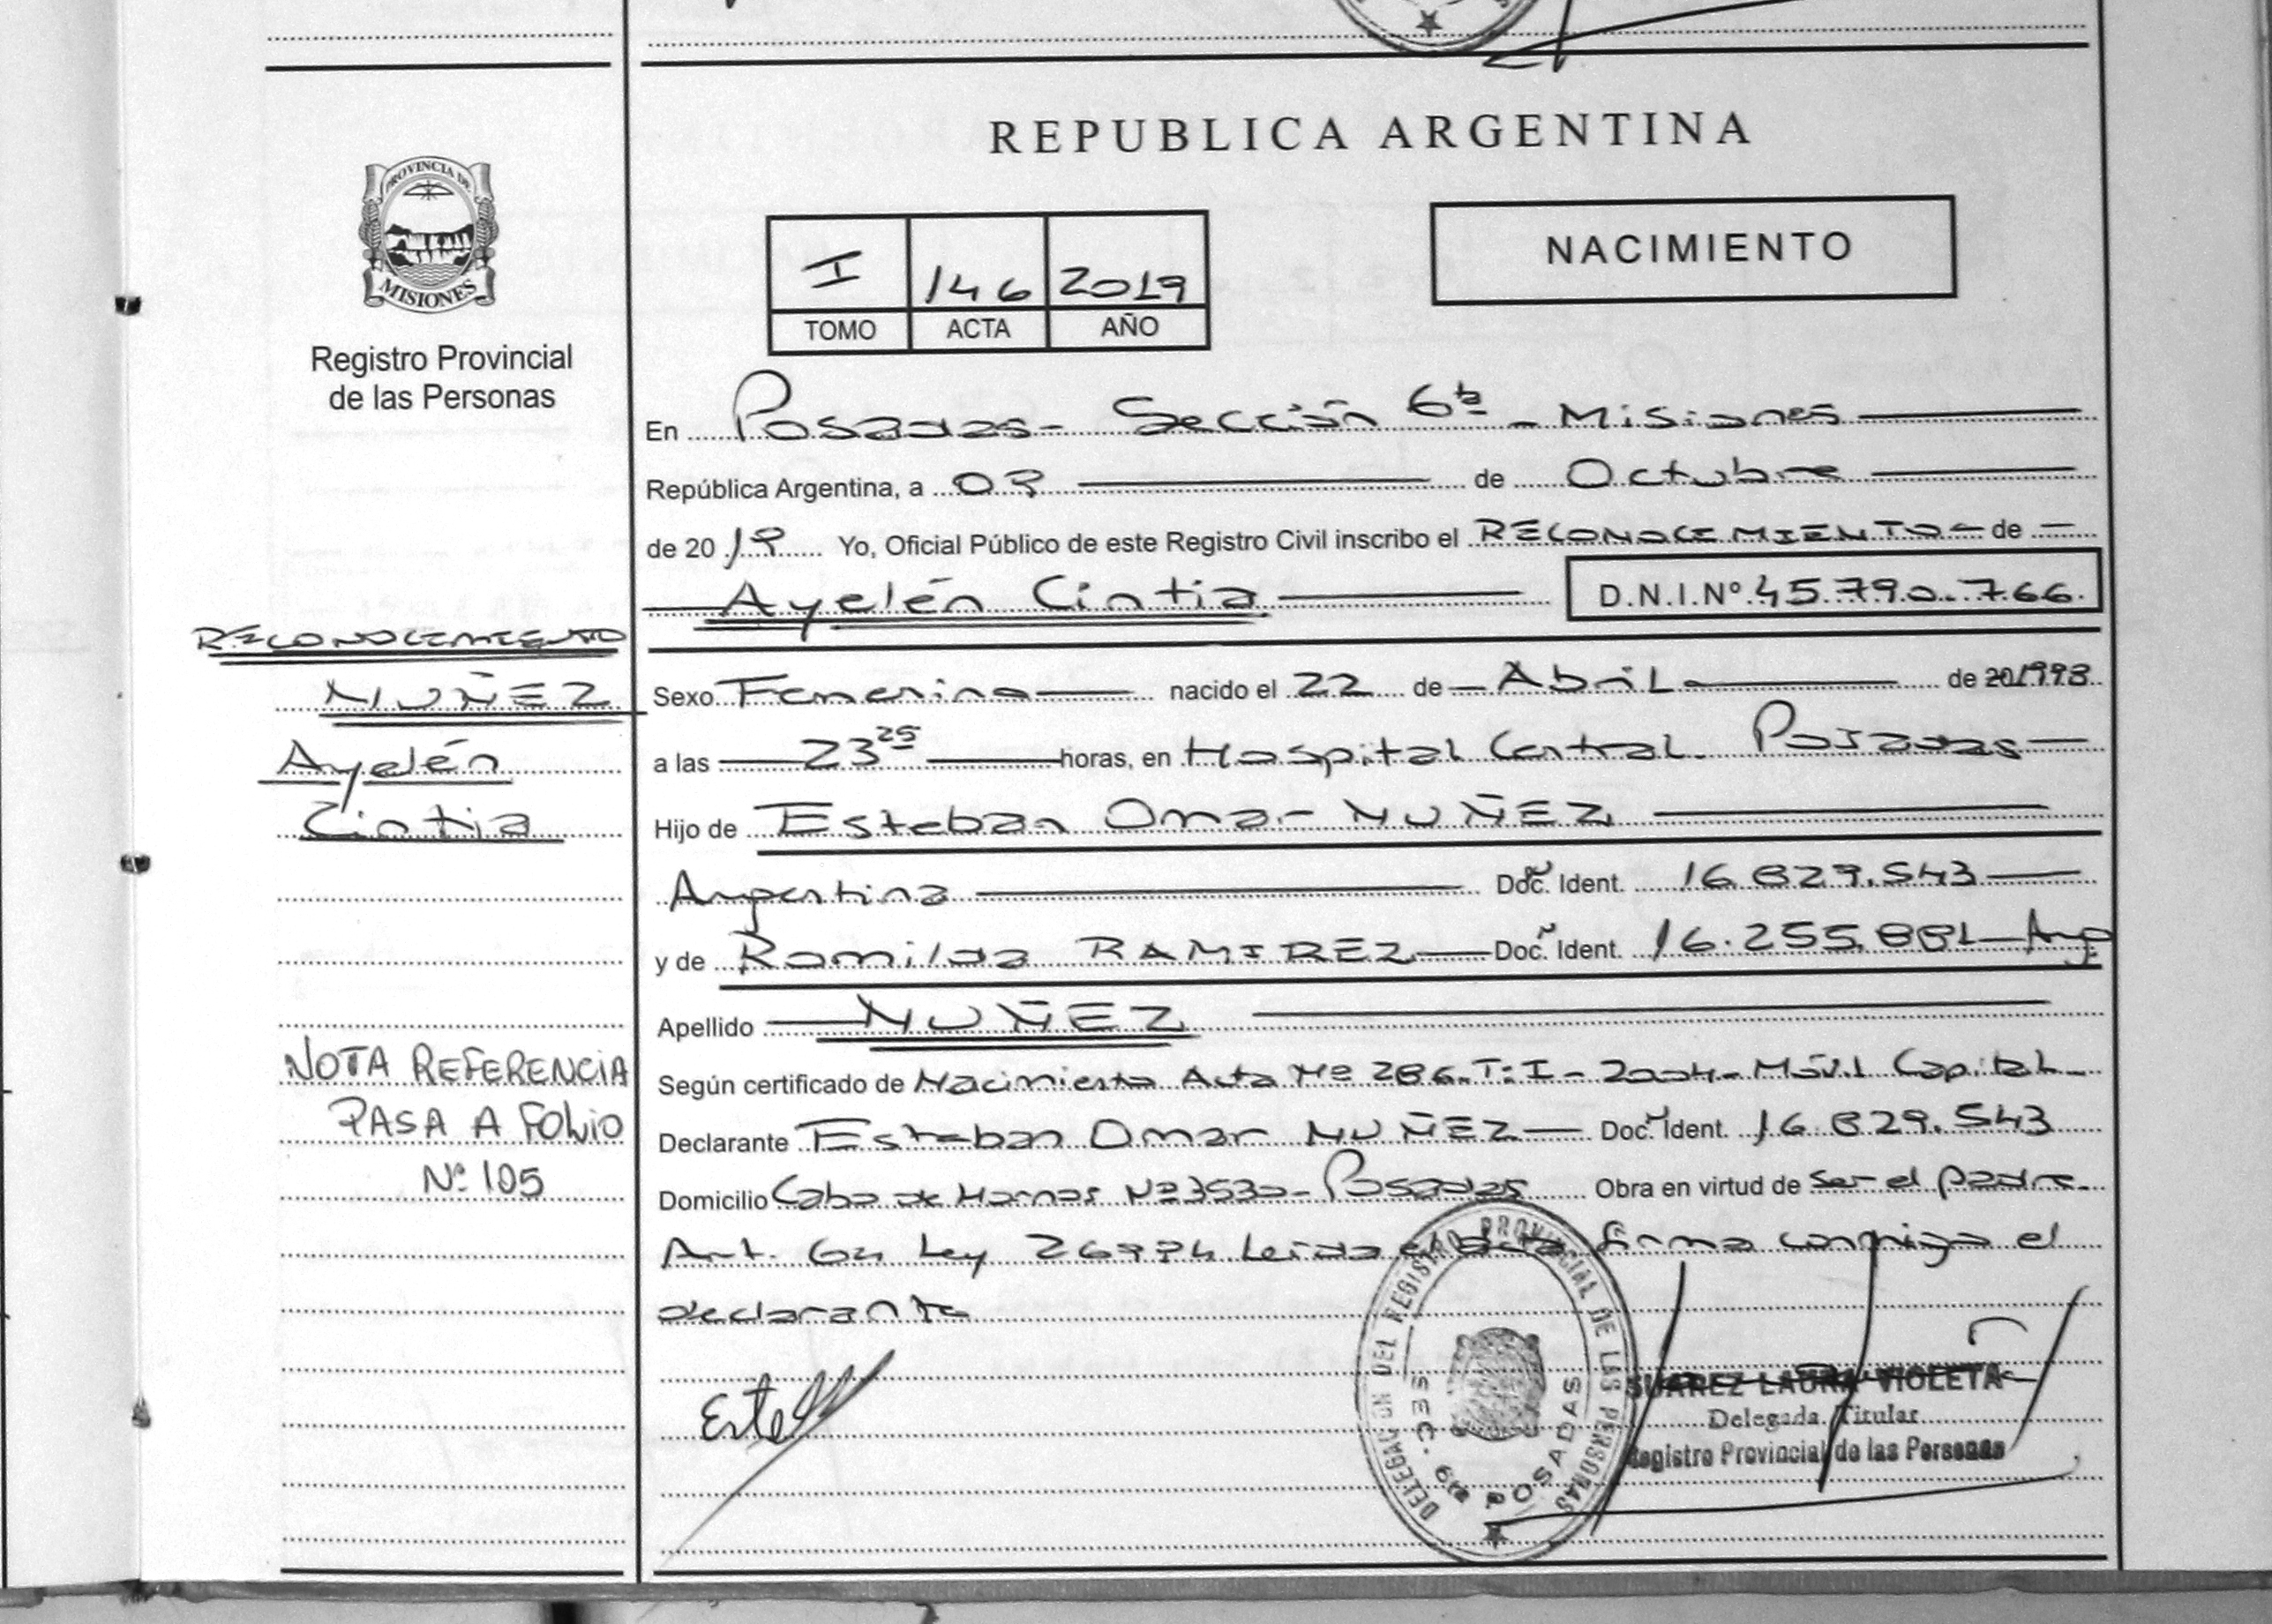 PROVINCIA DE
MISIONES
Registro Provincial
de las Personas
RECONOCIMIENTO
NUÑEZ
Ayelén
Cintia
NOTA REFERENCIA
PASA A FOLIO
Nº 105
REPUBLICA ARGENTINA
I 146 2019
TOMO ACTA AÑO
NACIMIENTO
En Posadas - Sección 6ta - Misiones
República Argentina, a 03 de Octubre
de 2019 Yo, Oficial Público de este Registro Civil inscribo el RECONOCIMIENTO - de
Ayelén Cintia D.N.I.Nº 45.790.766
Sexo Femenino nacido el 22 de Abril de 20 1998
a las 23 25 horas, en Hospital Central. Posadas
Hijo de Esteban Omar NUÑEZ
Argentina Doc. Ident. 16.829.543
y de Romilda RAMIREZ Doc. Ident. 16.255.881 Arg
Apellido NUÑEZ
Según certificado de Nacimiento Acta Nº 286. T: I - 2004 - Móvil Capital
Declarante Esteban Omar NUÑEZ Doc. Ident. 16.829.543
Domicilio Cabo de Hornos Nº 3530 - Posadas Obra en virtud de ser el padre.
Art. 64 Ley 26994 Leida el acta firma conmigo el
declarante
Este
DELEGACION DEL REGISTRO PROVINCIAL DE LAS PERSONAS
SEC. 6ta POSADAS
SUAREZ LAURA VIOLETA
Delegada Titular
Registro Provincial de las Personas